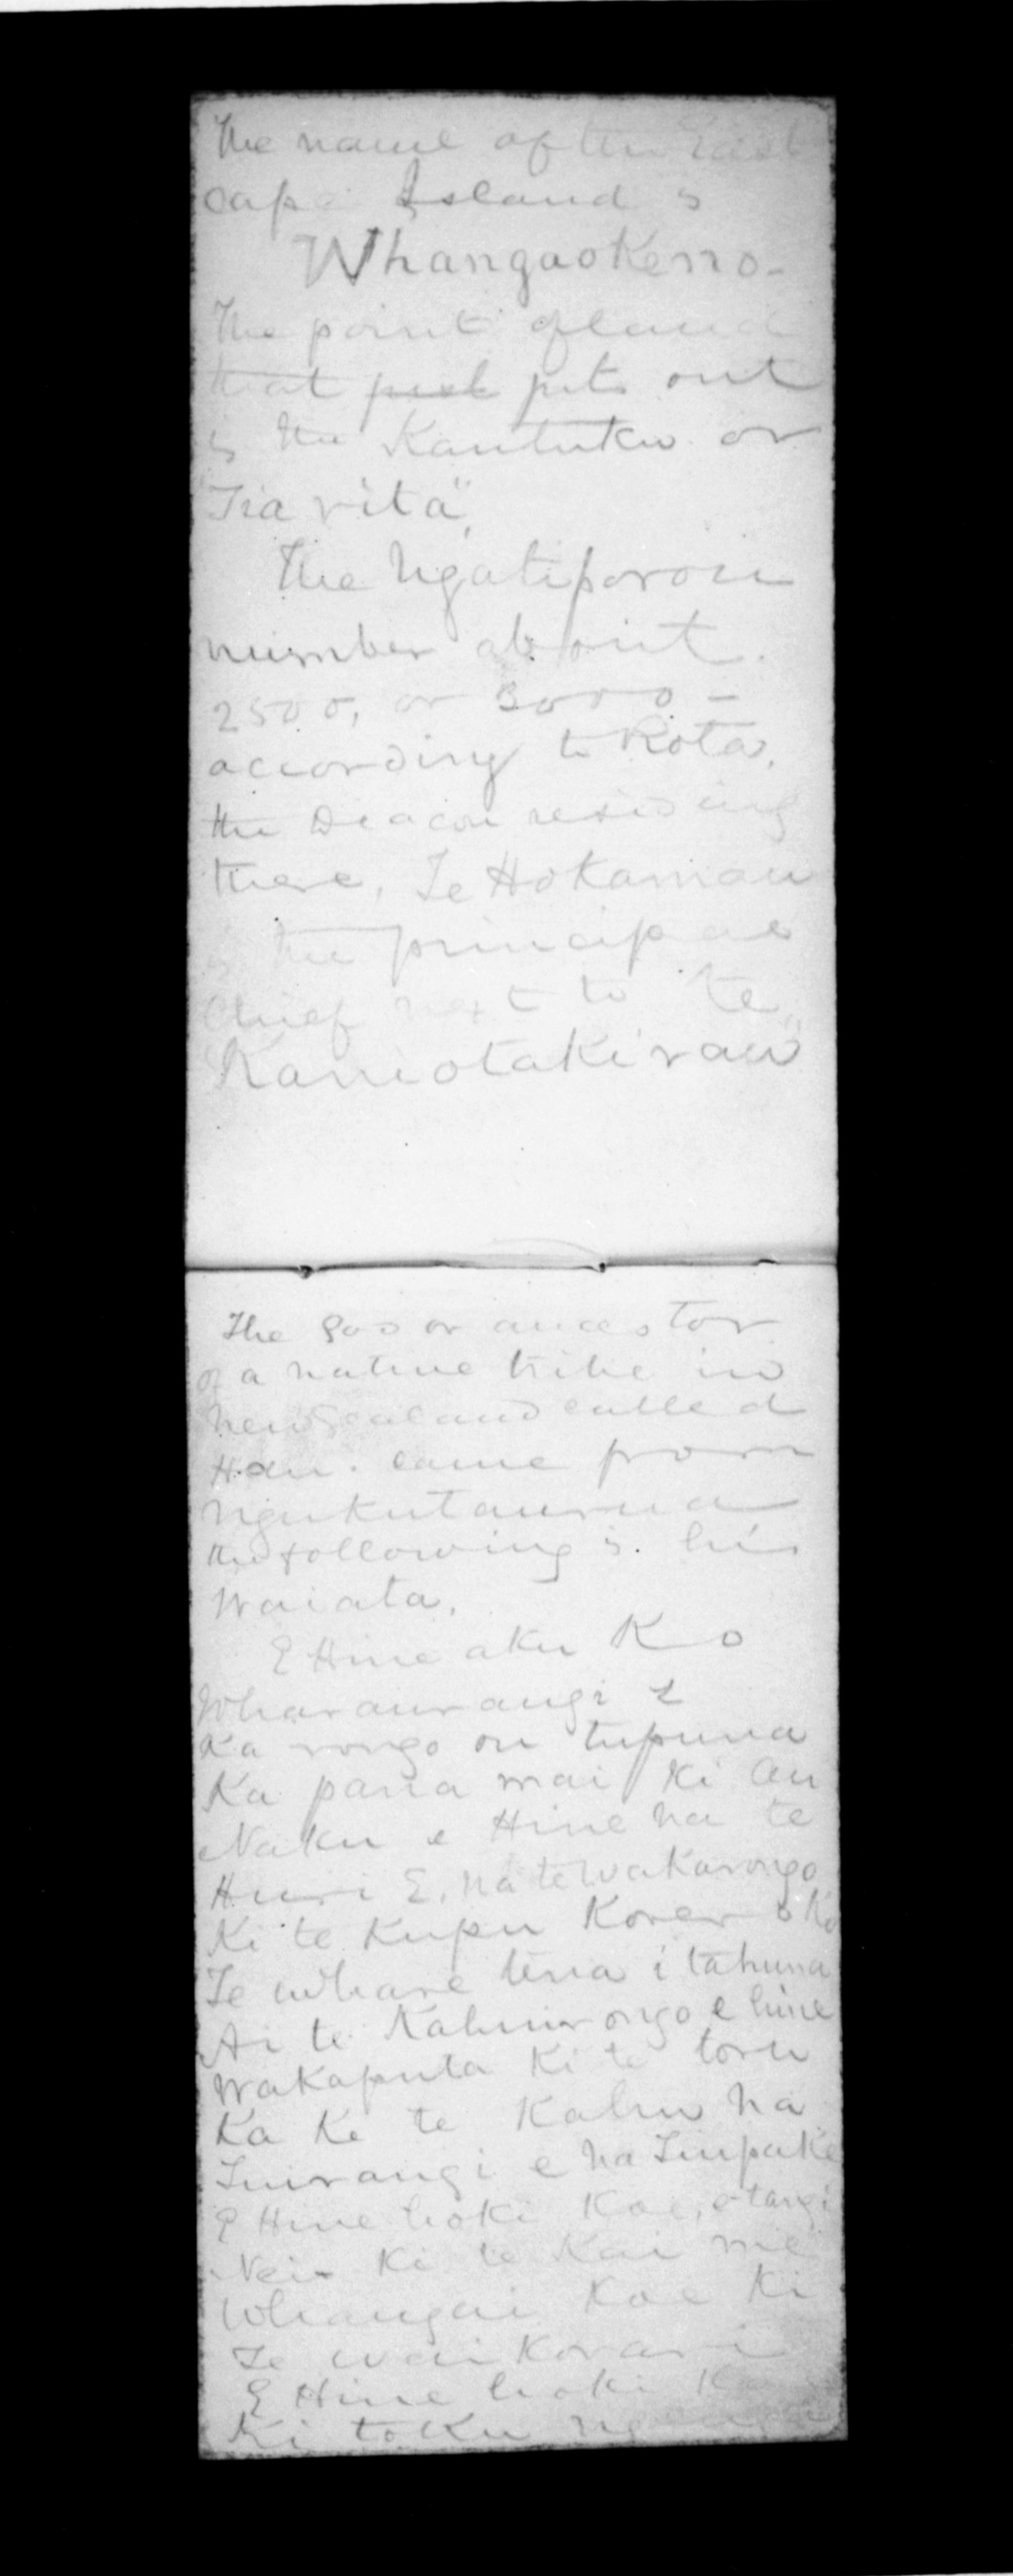 The name of the East
Cape Island is
Whangaokeno-
The point of land
that just juts out
is the Kautuku or
"Tia rita",
The Ngatiporou
number about.
2500, or 3000 -
according to Rota,
the Deacon residing
there, Te Hokamau
is the principal
Chief next to "te
Kaniotakirau"
The God or ancestor
of a native tribe in
New Zealand called
Hau. came from
Ngukutaurua
the following is. his
Waiata.
E Hine aku Ko
Wharaurangi E
Ka rongo ou tupuna
Ka pana mai ki au
Naku e Hine na te
Huri E, na te wakarongo
Ki te Kupu Korero Ko
Te whare tena i tahuna
Ai te Kahurorongo e hine
Wakaputa Ki te toru
Ka Ke te Kahu na
Tuirangi e na Tuupake
E Hine hoki Koe, e tangi
Nei- Ki te Kai me
Whangai Koe Ki
Te wai Korari
E Hine hoki
Ki toku